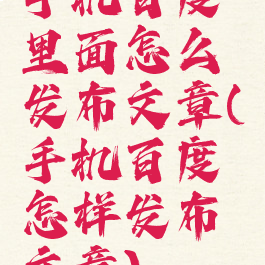 手机百度
里面怎么
发布文章(
手机百度
怎样发布
文章)